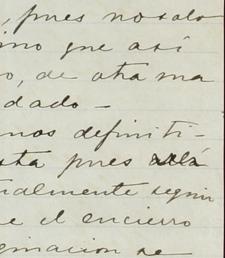 , pues no solo
ino que así
o, de otra ma
dado –
mos definiti-
sta pues
ualmente segun
ue el encierro
ginacion se